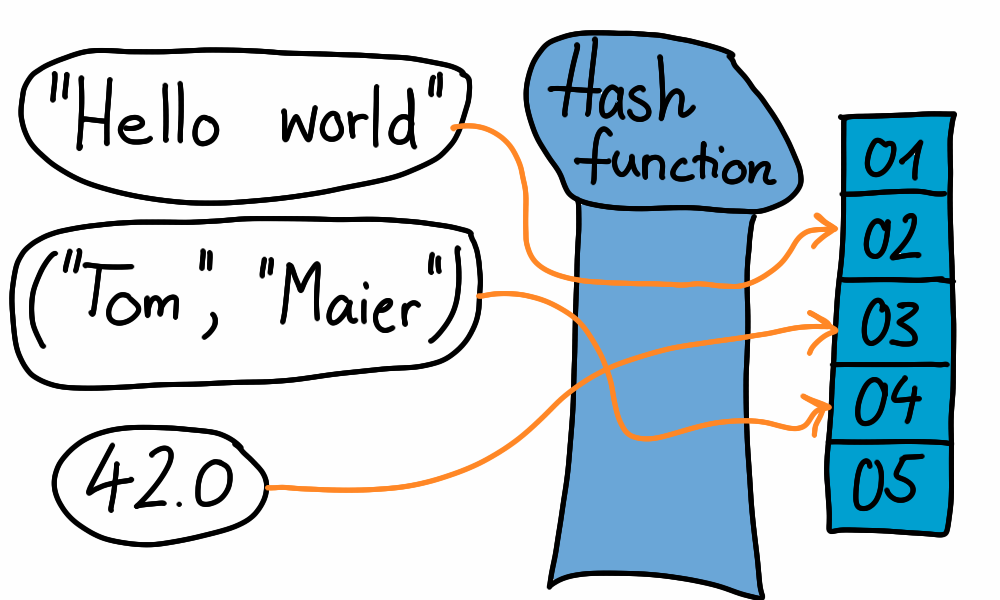 "Hello world"
("Tom", "Maier")
42.0
Hash
function
01
02
03
04
05